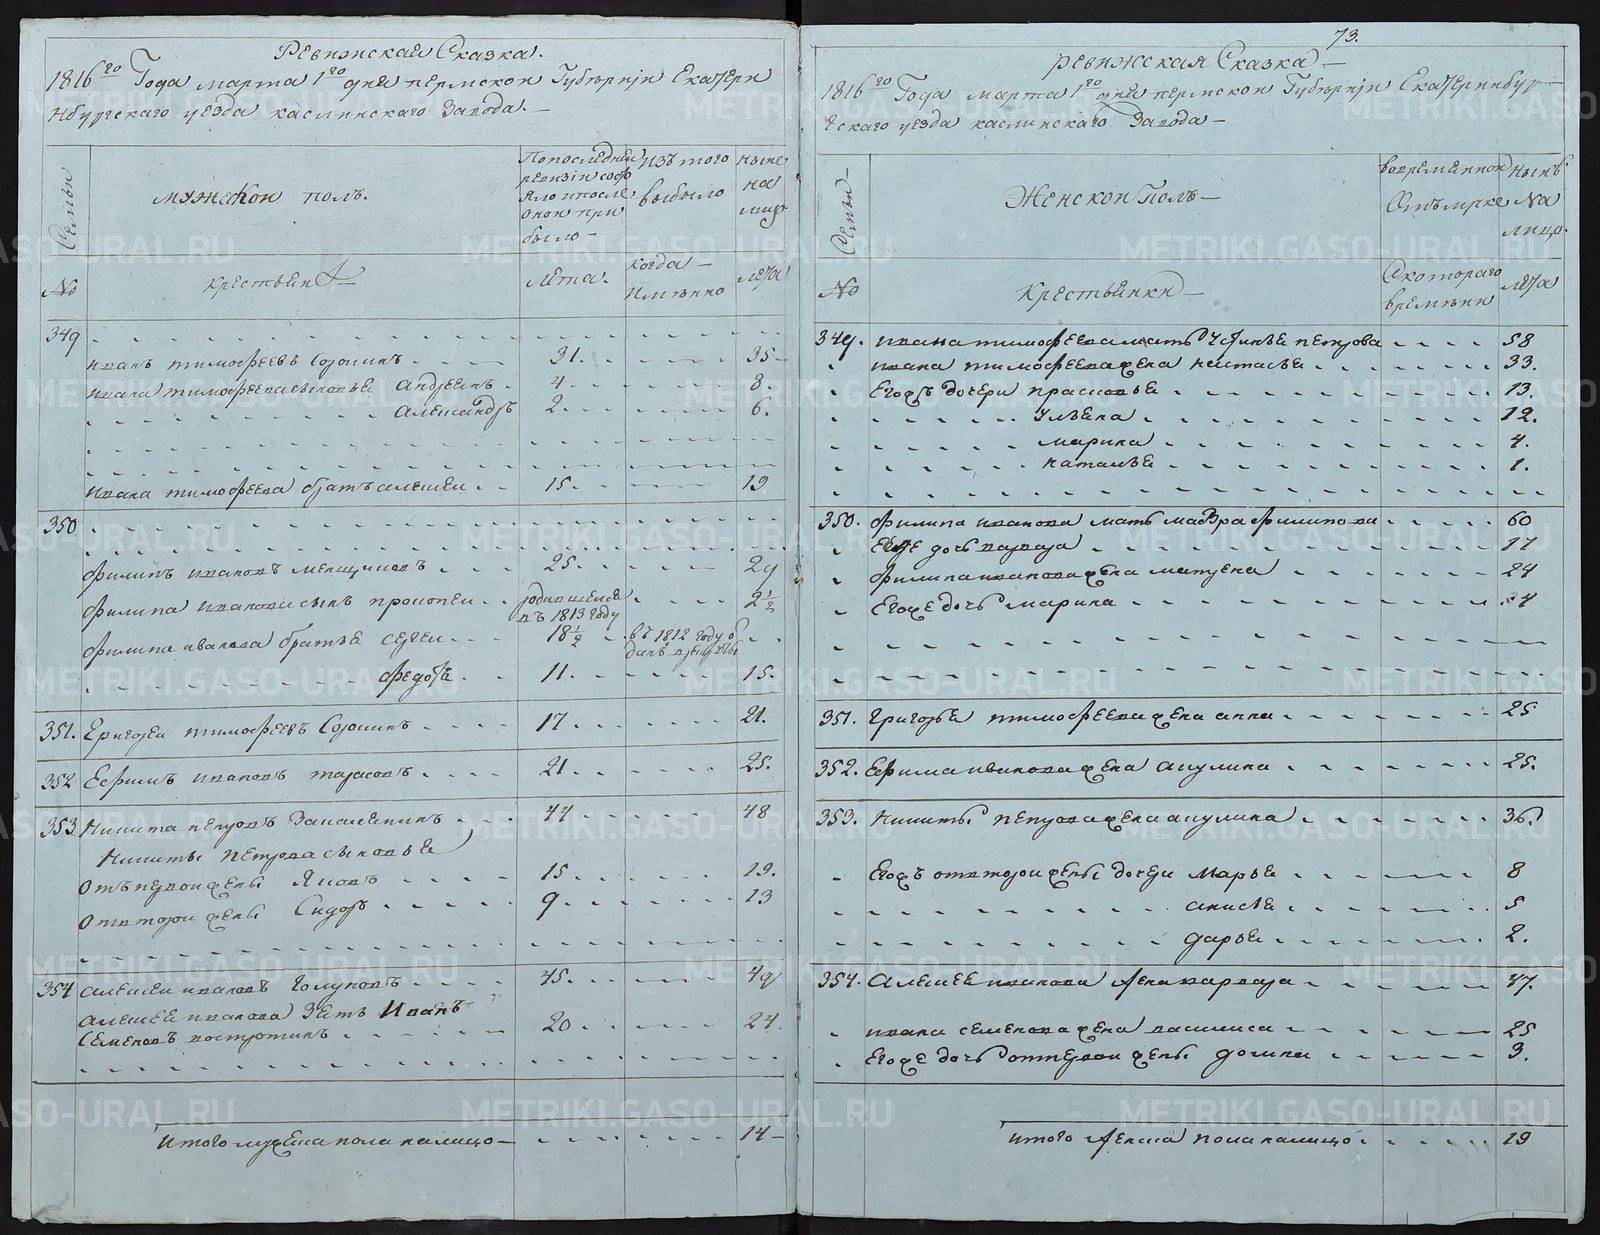 Ревижская Сказка.
1816го Года марта 1го дня пермской Губѣрнїи Екатери
нбургскаго уезда каслинскаго Завода.
Семьи
мужской полъ.
Попоследней ревизїи состояло ипосле оной прибыло
Изъ того выбыло
ныне на лицо
No
крестьянѣ
Лѣта.
когда Имянно
лета
349
иванъ тимофеевъ Созонинъ 31. 35
ивана тимофеева сыновья андреянъ 4. 8.
александръ 2. 6.
ивана тимофеева братъ алексеи 15. 19
350
филипъ ивановъ мѣнщиковъ 25. 29
филипа иванова сынъ прокопеи родившейся въ 1813 году 2 1/2
филипа иванова братья сергеи 18 1/2 въ 1812 году
федоръ 11. 15.
351. Григореи тимофеевъ Созонинъ 17 21.
352 Ефимъ ивановъ тарасовъ 21 25.
353 Никита петровъ 44 48
Никиты петрова сыновья
отъ первои жены Яковъ 15 19.
отвторои жены Сидоръ 9 13
354 алексеи ивановъ Голуновъ 45. 49
алексея иванова Зять Иванъ
Семеновъ востротинъ 20 24.
Итого мужеска пола налицо 14
73.
ревижская Сказка
1816го Года марта 1го дня пермской Губѣрнїи Екатеринбур
гскаго уезда каслинскаго Завода
Семьи
Женской Полъ
вовременной Отълучке
нынѣ На лицо.
No
Крестьянки
Скотораго времѣни
лета
349. ивана тимофеева мать устинья петрова 58
ивана тимофеева жена настасья 33.
Егожъ дочери прасковья 13.
ульяна 12.
марина 4.
наталья 1.
350. филипа иванова мать мавра филипова 60
Ееже дочь варвара 17
филипа иванова жена матрена 24
Егоже дочь марина 4
351. григорья тимофеева жена анна 25
352. Ефима иванова жена акулина 25.
353. Никиты петрова жена акулина 36.
Егожъ отвторои жены дочери марья 8
анисья 5
дарья 2.
354. Алексея иванова жена варвара 47.
ивана семенова жена василиса 25
Егоже дочь отпервои жены 3.
итого женска пола налицо 19